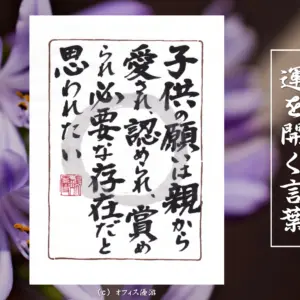 子供の願いは親から
愛され認められ、賞め
られ必要な存在だと
思われたい
運を開く言葉
（c）オフィス湯沼